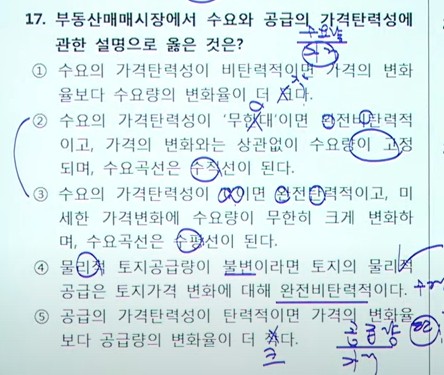 17. 부동산매매시장에서 수요와 공급의 가격탄력성에
관한 설명으로 옳은 것은?
① 수요의 가격탄력성이 비탄력적이면 가격의 변화
율보다 수요량의 변화율이 더
② 수요의 가격탄력성이 '무한대'이면 완전비탄력적
이고, 가격의 변화와는 상관없이 수요량이 고정
되며, 수요곡선은 수직선이 된다.
③ 수요의 가격탄력성이 이면 완전탄력적이고, 미
세한 가격변화에 수요량이 무한히 크게 변화하
며, 수요곡선은 수평선이 된다.
④ 물리적 토지공급량이 불변이라면 토지의 물리적
공급은 토지가격 변화에 대해 완전비탄력적이다.
⑤ 공급의 가격탄력성이 탄력적이면 가격의 변화율
보다 공급량의 변화율이 더
공급량